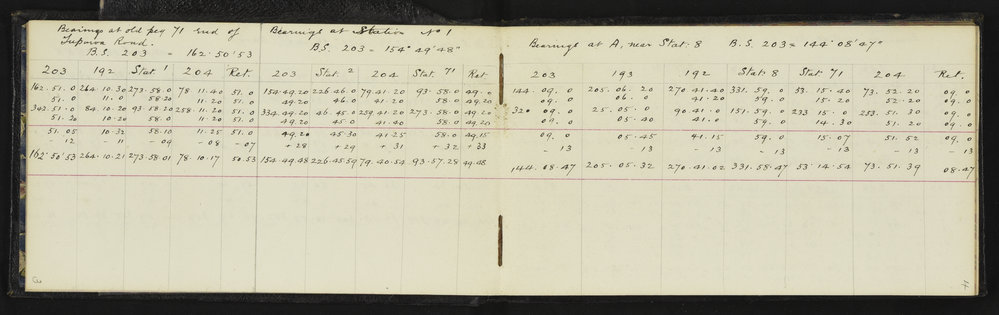 Bearings at old peg 71 end of
Road.
B.S. 203 = 162° 50' 53
203 192 Stat 1 204 Ret.
162. 51. 0 264. 10. 30 273. 58. 0 78 11. 40 51. 0
51. 0 11. 0 58. 20 11. 20 51. 0
342. 51. 0 84. 10. 20 93. 58. 20 258 11. 20 51. 0
51. 20 10. 20 58. 0 11. 20 51. 0
51. 05 10. 32 58. 10 11. 25 51. 0
- 12 - 11 - 09 - 08 - 07
162° 50' 53 264. 10. 21 273. 58. 01 78. 10. 17 50. 53
Bearings at Station No 1
B.S. 203 = 154° 49' 48"
203 Stat. 2 204 Stat. 71 Ret
154. 49. 20 226. 46. 0 79. 41. 20 93. 58. 0 49. 0
49. 20 46. 0 41. 20 58. 0 49. 20
334. 49. 20 46. 45. 0 259. 41. 20 273. 58. 0 49. 20
49. 20 45. 0 41. 40 58. 0 49. 20
49. 20 45. 30 41. 25 58. 0 49. 15
+ 28 + 29 + 31 + 32 + 33
154. 49. 48 226. 45. 59 79. 40. 54 93. 57. 28 49. 48
Bearings at A, near Stat. 8 B.S. 203 = 144° 08' 47"
203 193 192 Stat 8 Stat 71 204 Ret.
144. 09. 0 205. 06. 20 270. 41. 40 331. 59. 0 53. 15. 40 73. 52. 20 09. 0
09. 0 06. 0 41. 20 59. 0 15. 20 52. 20 09. 0
320 09. 0 25. 05. 0 90. 41. 0 151. 59. 0 233 15. 0 253. 51. 30 09. 0
09. 0 05. 40 41. 0 59. 0 14. 30 51. 20 09. 0
09. 0 05. 45 41. 15 59. 0 15. 07 51. 52 09. 0
- 13 - 13 - 13 - 13 - 13 - 13 - 13
144. 08. 47 205. 05. 32 270. 41. 02 331. 58. 47 53. 14. 54 73. 51. 39 08. 47